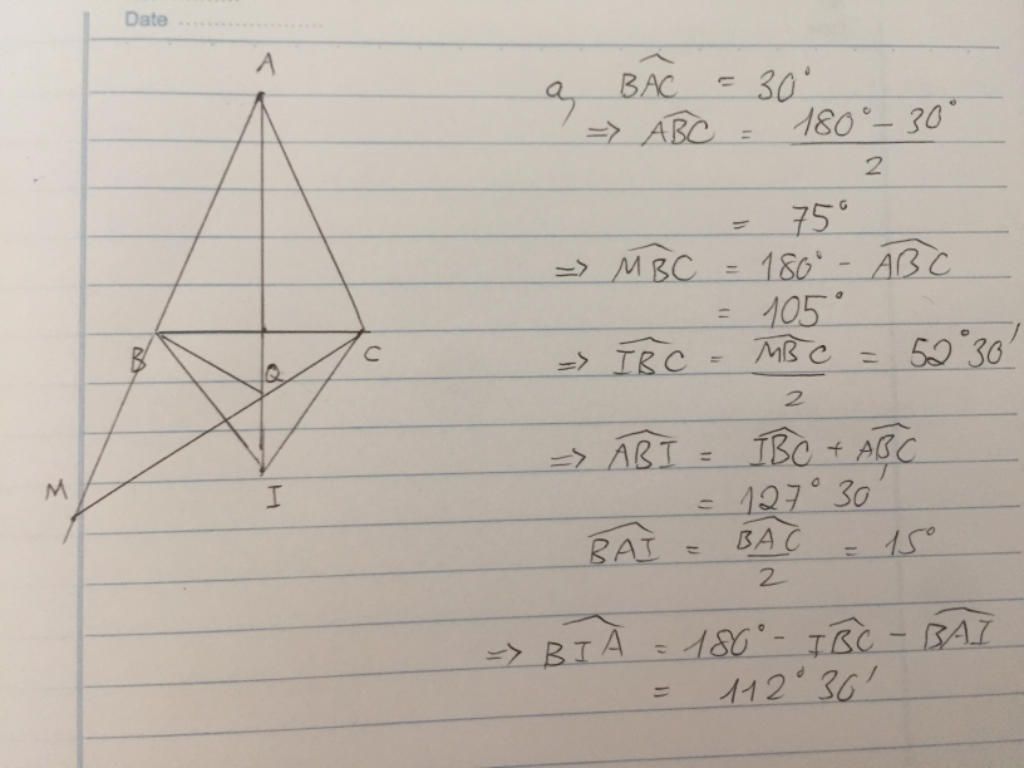 Date ....................
A
B
C
Q
M
I
a, BAC = 30°
=> ABC = 180° - 30° / 2
= 75°
=> MBC = 180° - ABC
= 105°
=> IBC = MBC / 2 = 52°30'
=> ABI = IBC + ABC
= 127°30'
BAI = BAC / 2 = 15°
=> BIA = 180° - IBC - BAI
= 112°30'